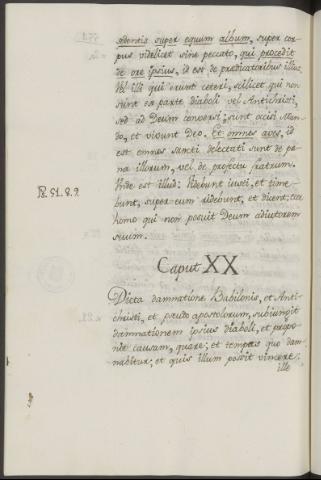 sedentis super equum album, super cor-
pus videlicet sine peccato, qui procedit
de ore ipsius, id est de predicatoribus illius.
Vel illi qui erunt ceteri, scilicet qui non
sunt ex parte diaboli vel Antichristi,
sed ad Deum conversi; sunt occisi Mun-
do, et vivunt Deo. Et omnes aves, id
est omnes sancti delectati sunt de pe-
na illorum, vel de profectu fratrum.
Unde est illud: Videbunt iusti, et time-
bunt, super eum ridebunt, et dicent: ecce
homo qui non posuit Deum adiutorem
suum.
Ps 51. 8. 9.
Caput XX
Dicta damnatione Babilonis, et Anti-
christi, et pseudo apostolorum, subiungit
damnationem ipsius diaboli, et propo-
nit causam, quare; et tempus quo dam-
nabitur; et quis illum possit vincere;
ille